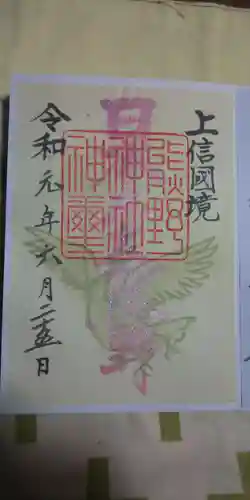 上信國境
熊野
神社
神璽
令和元年六月二十五日